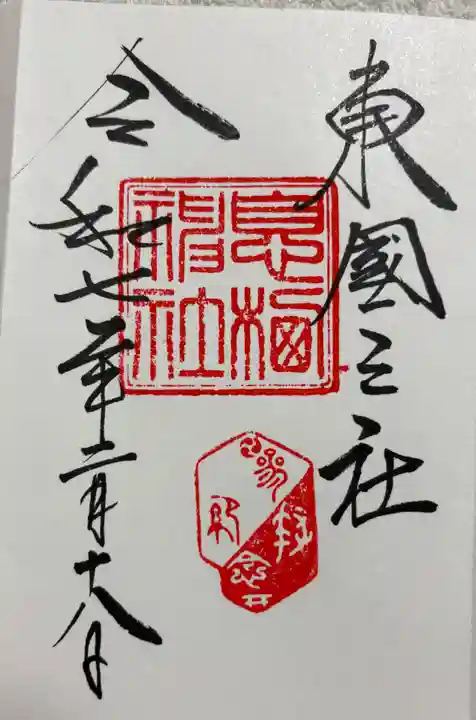 東國三社
息栖神社
令和七年二月十八日